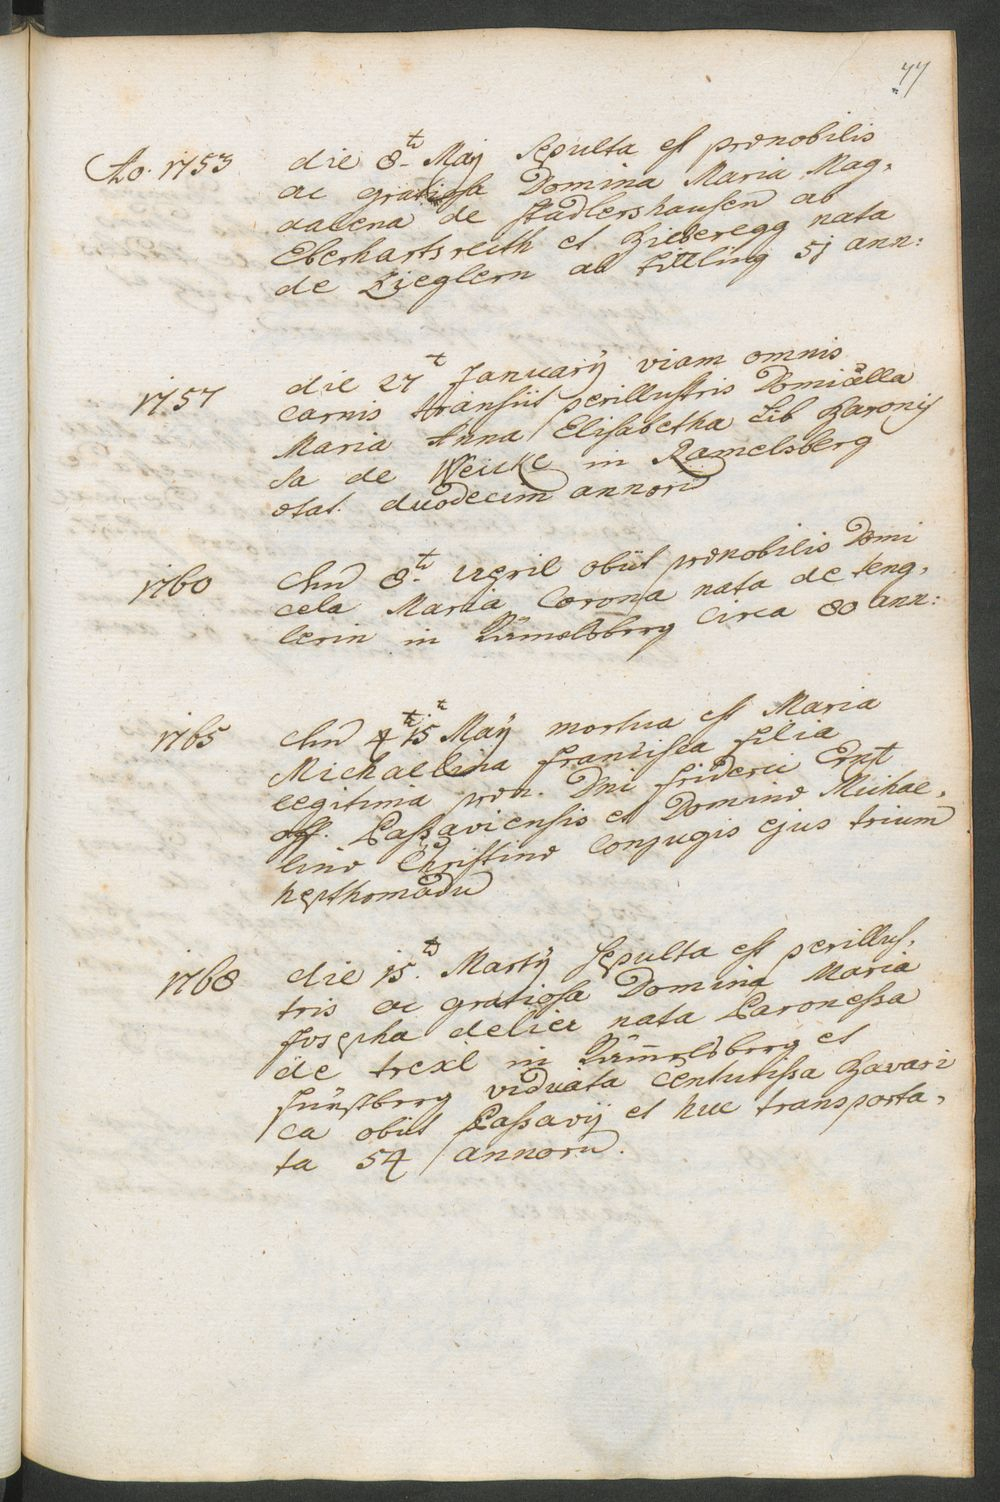 77
Ao. 1753 die 8t. Maÿ sepulta est prænobilis
ac gratiosa Domina Maria Mag,
dalena de Stadlershausen ab
Eberhartsreith et Zieberegg nata
de Zieglern ab Fittling 51 ann:
1757 die 27t Januarÿ viam omnis
carnis transiit perillustris Domicella
Maria Anna Elisabetha Lib Baronis
sa de Weicke in Ramelsberg
ætat. duodecim annorū
1760 8t. April obiit prænobilis Domi
cela Maria Corona nata de Teng,
lerin in Ramelsberg circa 80 ann:
1765 15t Maÿ mortua est Maria
Michaelina Francisca filia
legitima præn. Dni Friderici Ernst
off. Passaviensis et Dominæ Michae,
linæ Christinæ Conjugis ejus trium
hepthomadū
1768 die 15t. Martÿ sepulta est perillus,
tris ac gratiosa Domina Maria
Josepha delier nata Baronessa
de trexl in Ramelsberg et
Fürstberg viduata Centurissa Bavari
ca obiit Passavÿ et huc transporta,
ta 54 annorū.